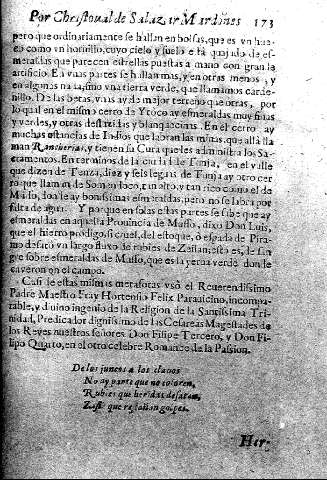 Por Christoual de Salazar Mardones 173
pero que ordinariamente se hallan en bolsas, que es vn hue-
co como vn hornillo, cuyo cielo y suelo està quajado de es-
meraldas que parecen estrellas puestas a mano con gran
artificio. En vnas partes se hallan mas, y en otras menos, y
en algunas nada, sino vna tierra verde, que llamamos carde-
nillo. De las betas, vnas ay de mejor terreno que otras, por
lo qual en el mismo cerro de Ytoco ay esmeraldas muy finas
y verdes, y otras deslauadas y blanquecinas. En el cerro ay
muchas estancias de Indios que labran las minas, que allà lla
man Rancherias, y tienen su Cura que les administra los Sa-
cramentos. En terminos de la ciudad de Tunja, en el valle
que dizen de Tenza, diez y seis leguas de Tunja ay otro cer
ro que llaman de Somondoco, tan alto, y tan rico como el de
Musso, donde ay bonissimas esmeraldas, pero no se labra por
falta de agua. Y porque en solas estas partes se sabe que ay
esmeraldas en aquesta Prouincia de Musso, dixo Don Luis,
que el hierro prodigo, si cruel, del estoque, ò espada de Pira-
mo desatò vn largo fluxo de rubies de Zeilan; esto es, de san
gre sobre esmeraldas de Musso, que es la yerua verde donde
cayeron en el campo.
Casi de estas mismas metaforas vsò el Reuerendissimo
Padre Maestro Fray Hortensio Felix Parauicino, incompa-
rable, y diuino ingenio de la Religion de la Santissima Tri-
nidad, Predicador dignissimo de las Cesareas Magestades de
los Reyes nuestros señores Don Filipe Tercero, y Don Fi-
lipo Quarto, en el otro celebre Romance de la Passion.
De los juncos a los clauos
No ay parte que no coloren,
Rubies que heridas desatan,
Zafir que restañan golpes.
Her-